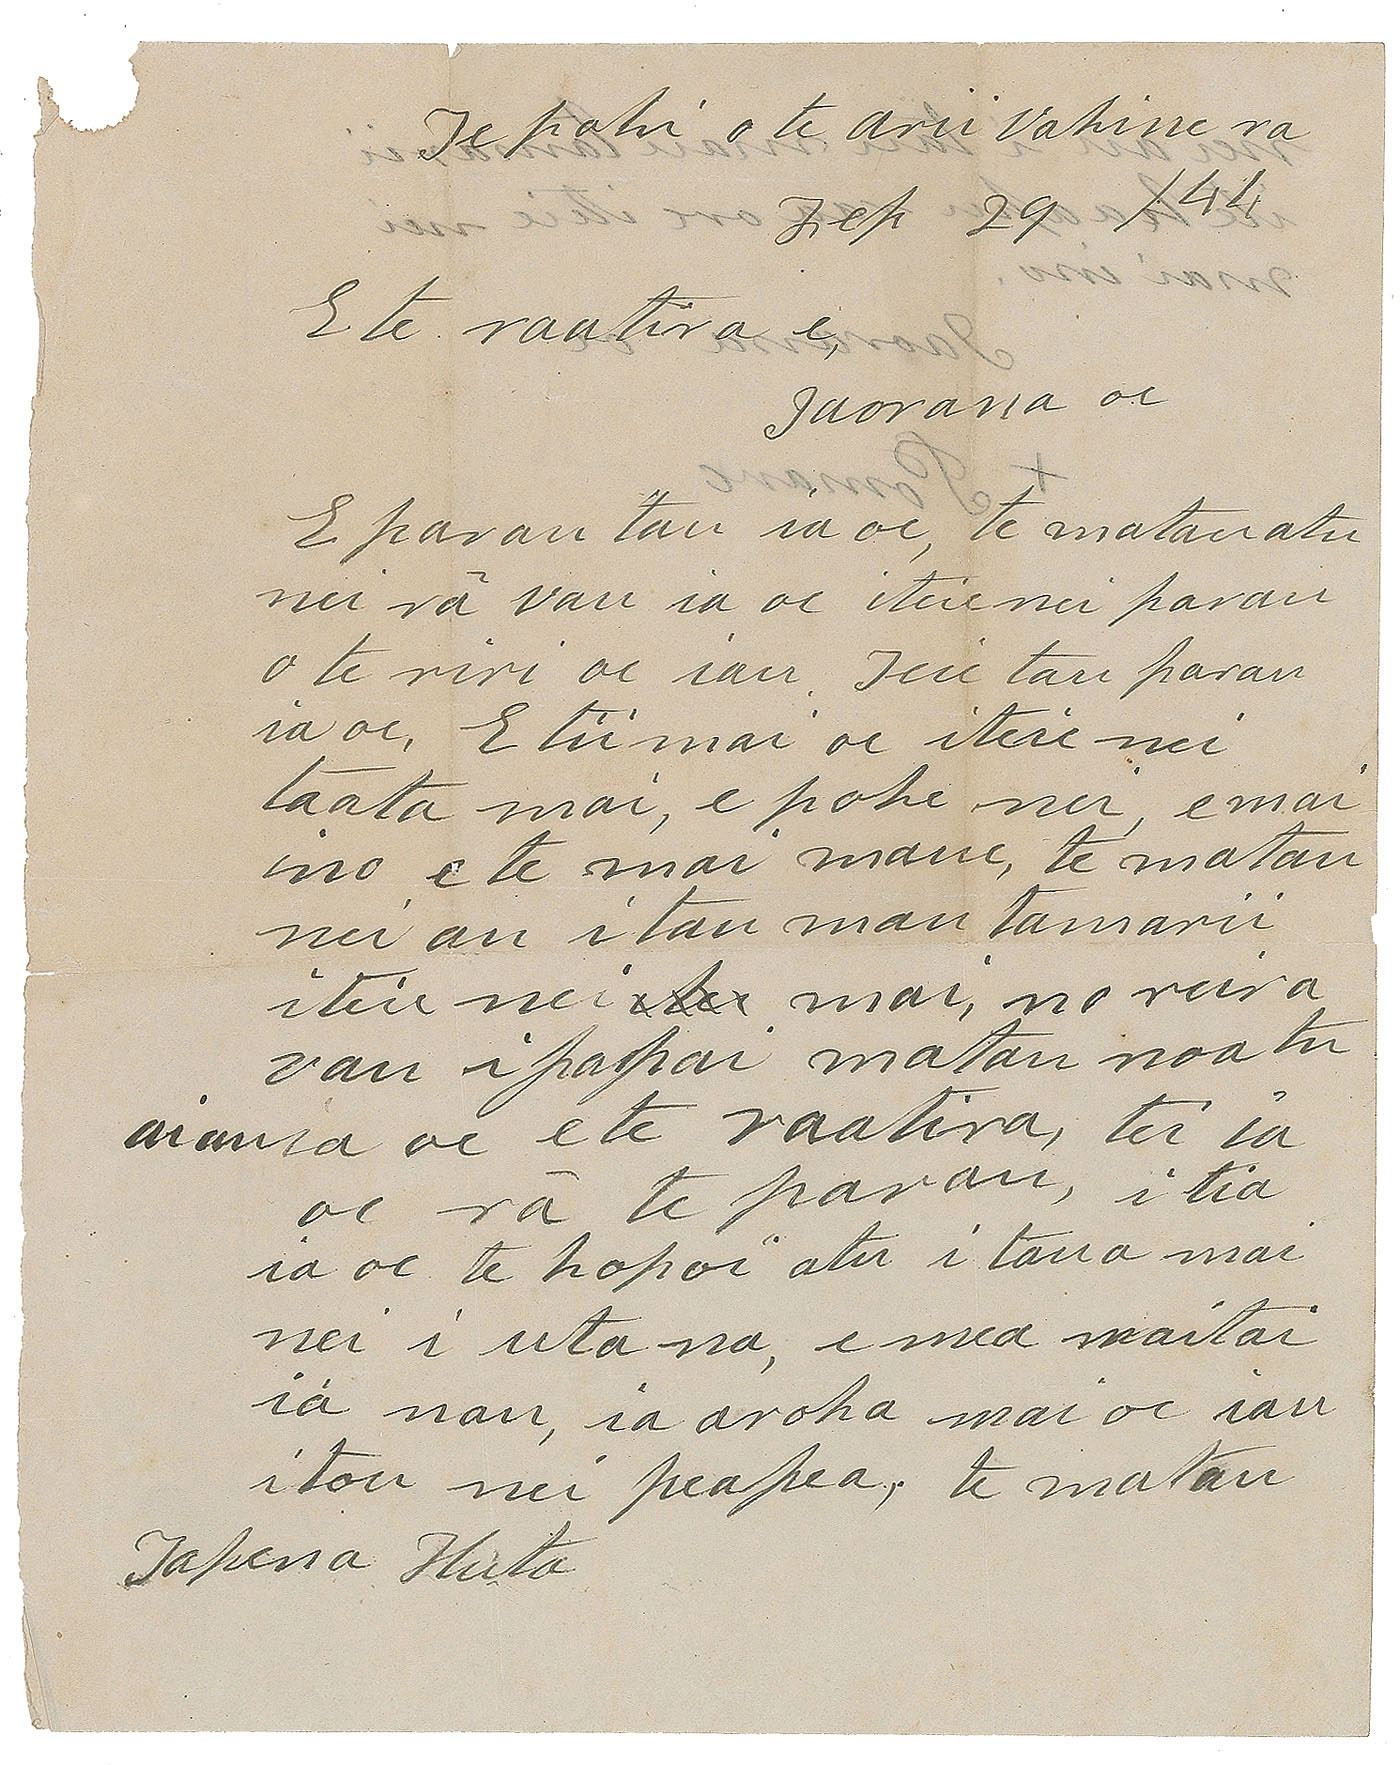 Te pahi o te arii vahine ra
Sep 29 /44
E te raatira e,
Iaorana oe
E parau tau ia oe, te matau atu
nei râ vau ia oe i teie nei parau
o te riri oe iau. Teie tau parau
ia oe, E tii mai oe i teie nei
taata mai, e pohe nei, e mai
ino e te mai maue, te matau
nei au i tau mau tamarii
i teie nei mai, no reira
vau i papai matau noa tu
ai au ia oe e te raatira, tei ia
oe râ te parau, i tia
ia oe te hopoi atu i taua mai
nei i uta na, e mea maitai
ïa nau, ia aroha mai oe iau
i tou nei peapea, te matau
Tapena Huta
nei au i tau mau tamarii
mai ino.
Iaorana oe
+ Pomare